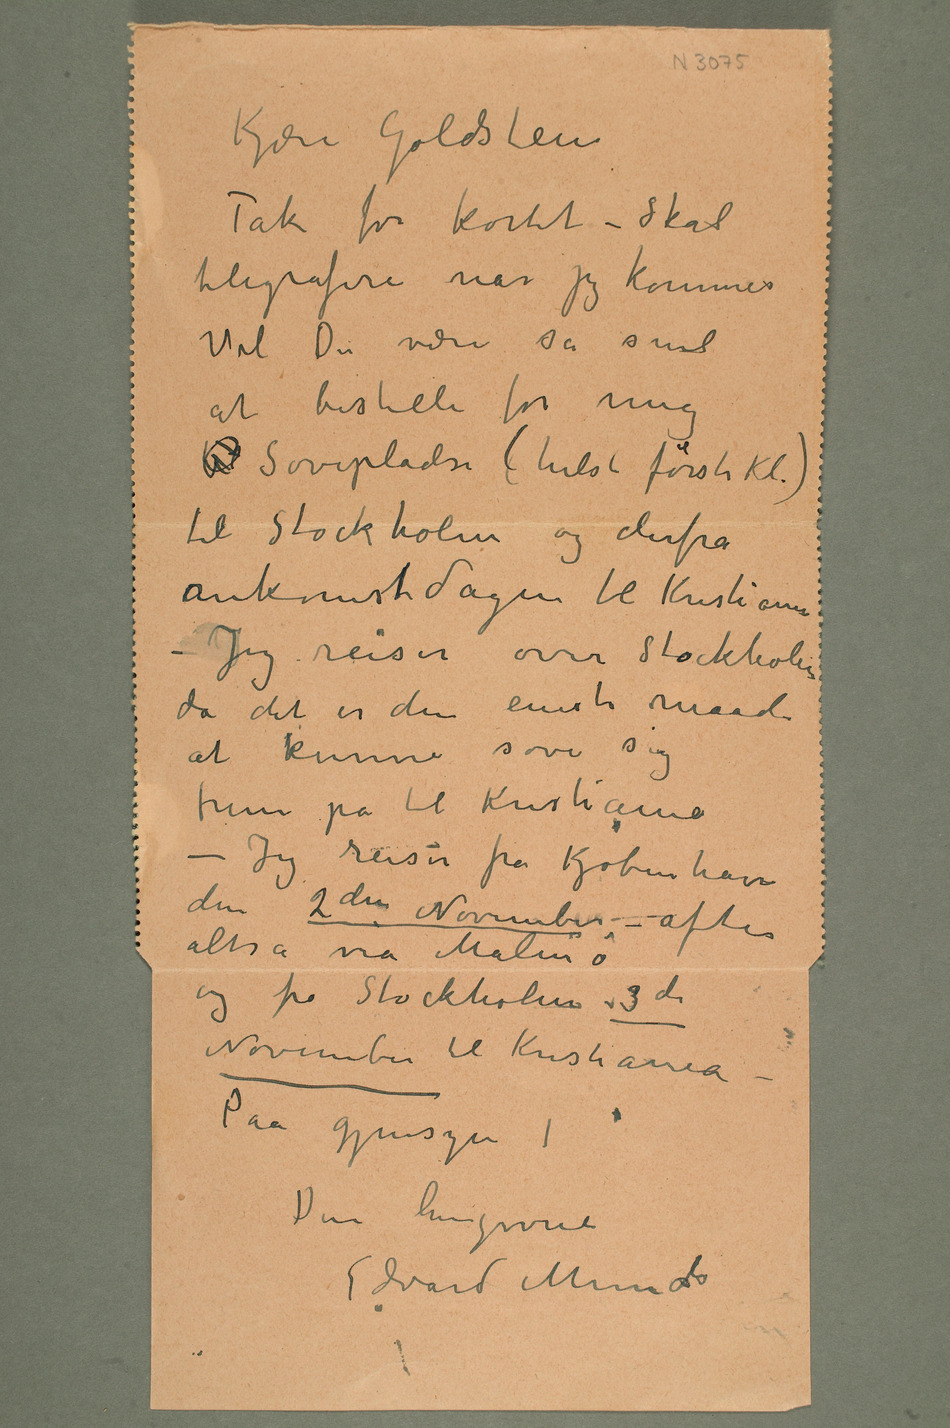 N 3075
Kjære Goldstein
Tak for kortet – Skal
telegrafere når jeg kommer
Vil Du være så snil
at bestille for mig
Sovepladse (helst første Kl.)
til Stockholm og derfra
ankomstdagen til Kristiania
– Jeg reiser over Stockholm
da det er den eneste maade
at kunne sove sig
frem på til Kristiania
– Jeg reiser fra Kjøbenhavn
den 2den November – aften
altså via Malmö
og fra Stockholm 3de
November til Kristiania –
Paa gjensyn !
Din hengivne
Edvard Munch